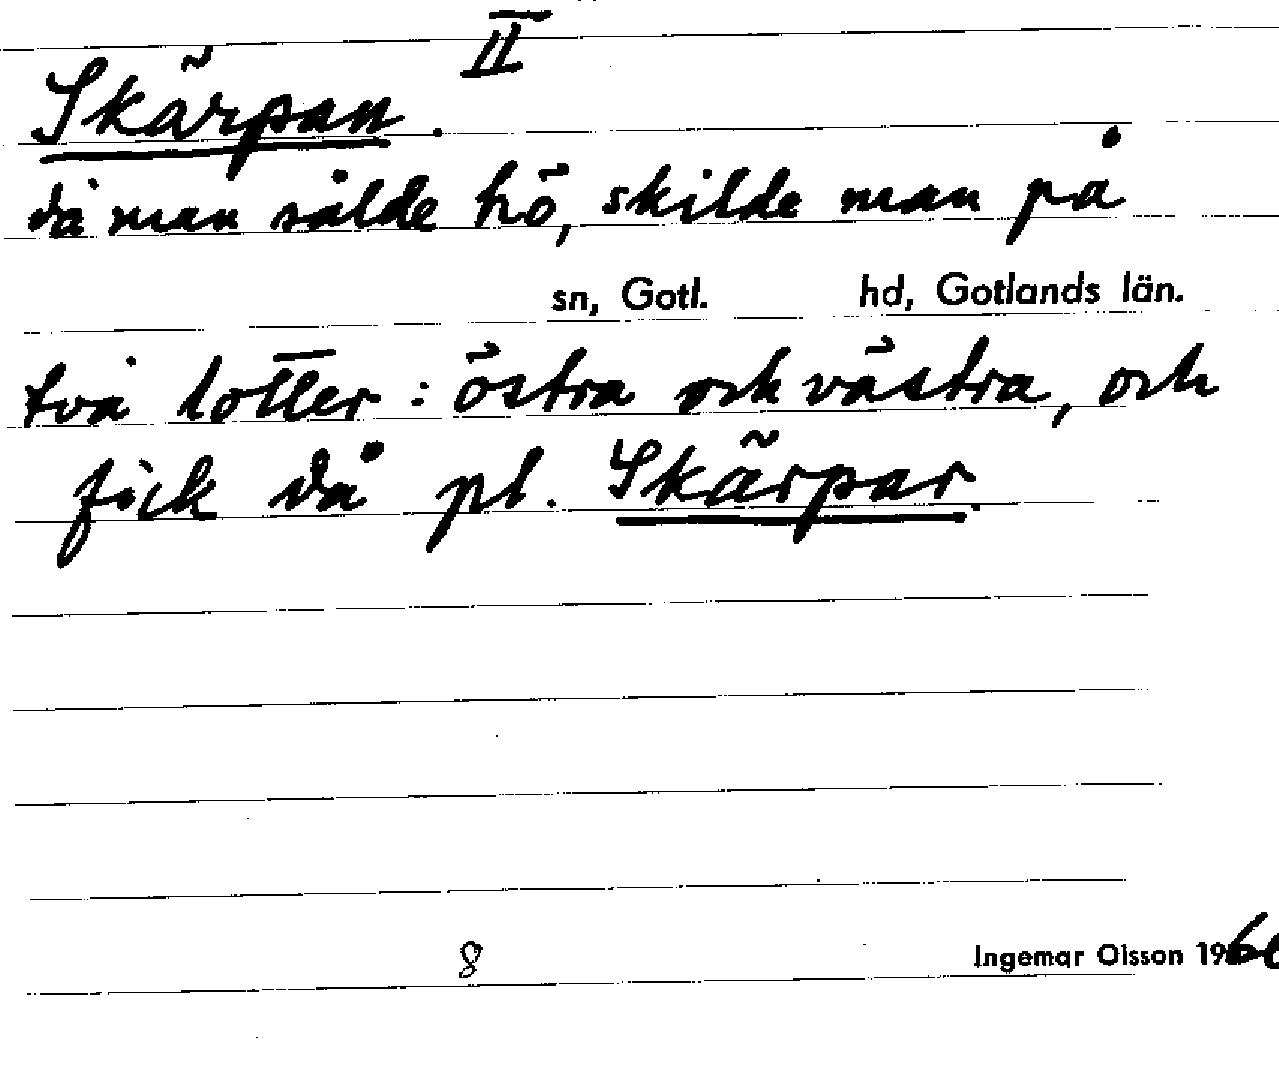 II
Skärpan.
då man sålde hö, skilde man på
sn, Gotl. hd, Gotlands län.
två lotter: östra och västra, och
fick då pl. Skärpar.
8
Ingemar Olsson 196